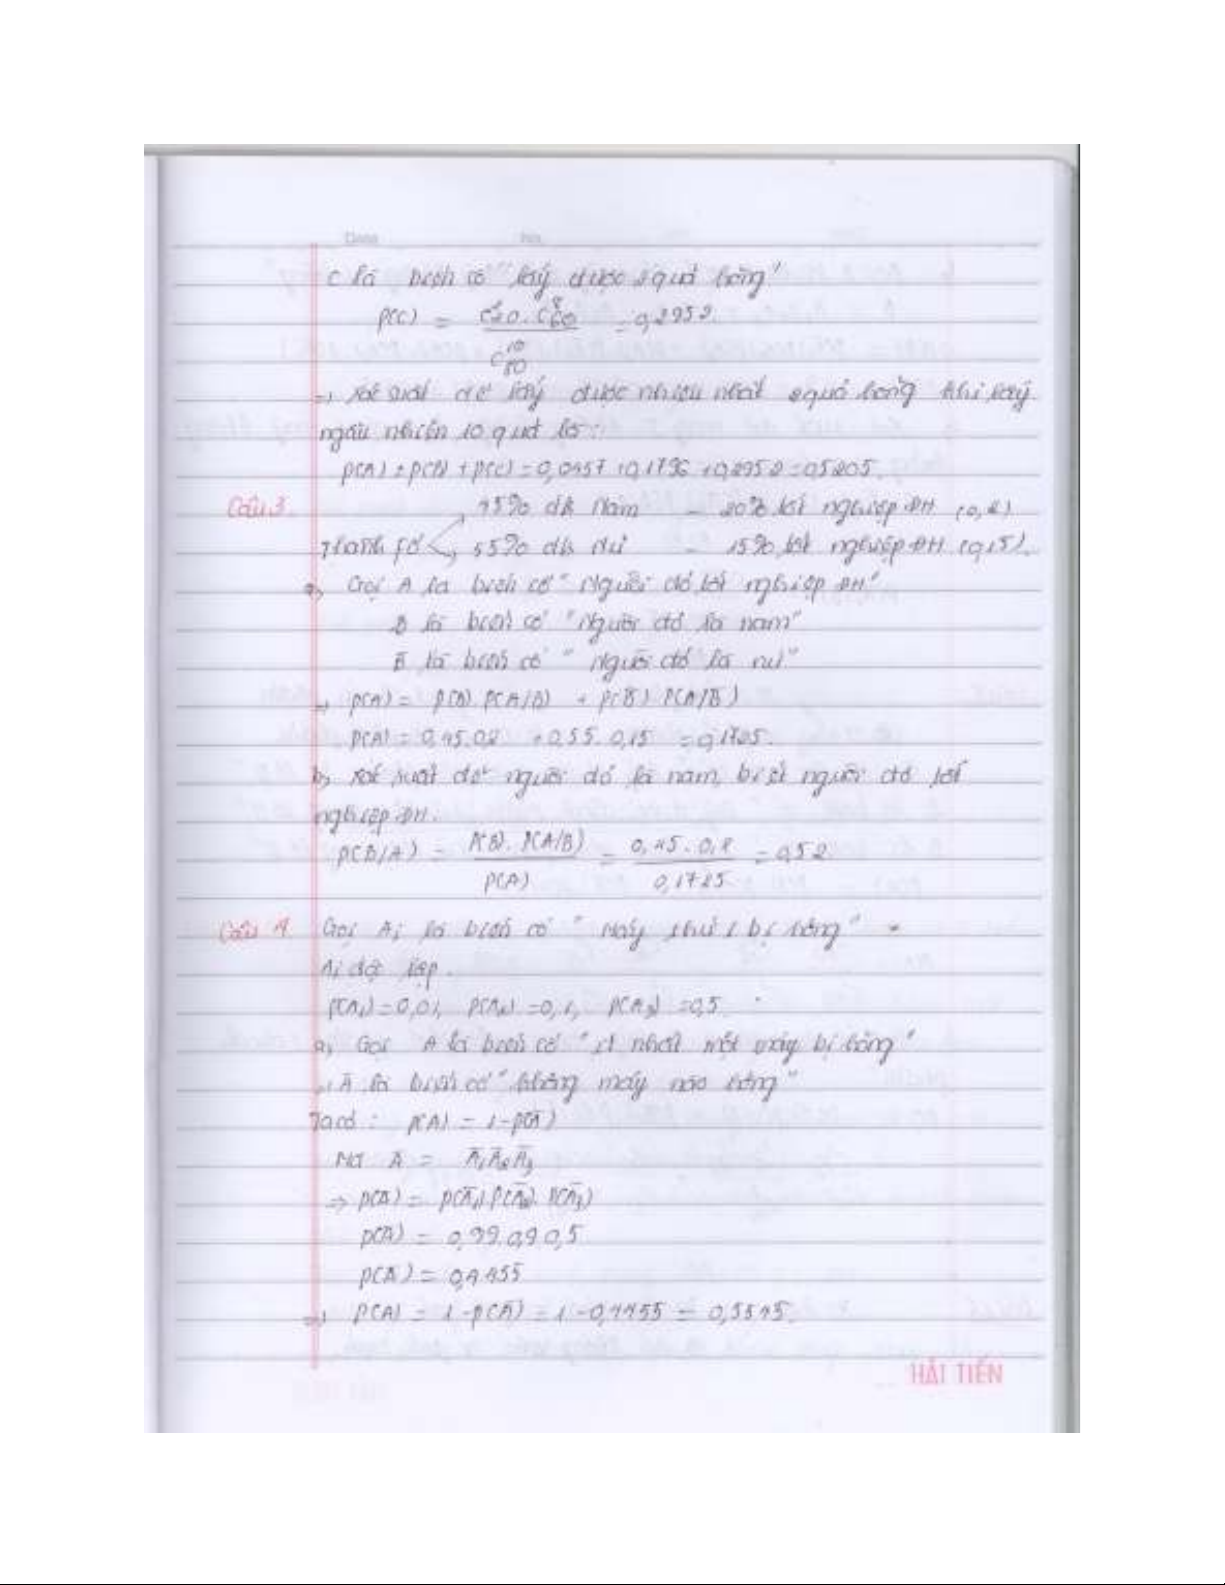 C là biến cố "lấy được 2 quả hỏng"
P(C) = C²20.C⁸60 / C¹⁰80 = 0,2952.
=> Xác suất để lấy được nhiều nhất 2 quả hỏng khi lấy
ngẫu nhiên 10 quả là:
P(A) + P(B) + P(C) = 0,0457 + 0,1796 + 0,2952 = 0,5205.
Câu 3
45% dân Nam - 20% tốt nghiệp ĐH (0,2)
Thành fố
55% dân nữ - 15% tốt nghiệp ĐH (0,15).
a, Gọi A là biến cố "Người đó tốt nghiệp ĐH"
B là biến cố "Người đó là nam"
B̄ là biến cố "Người đó là nữ"
=> P(A) = P(B). P(A/B) + P(B̄). P(A/B̄)
P(A) = 0,45.0,2 + 0,55. 0,15 = 0,1725.
b, Xác suất để người đó là nam, biết người đó tốt
nghiệp ĐH.
P(B/A) = P(B). P(A/B) / P(A) = 0,45. 0,2 / 0,1725 = 0,52.
Câu 4
Gọi Ai là biến cố "Máy thứ i bị hỏng"
Ai độc lập.
P(A₁) = 0,01, P(A₂) = 0,1, P(A₃) = 0,5.
a, Gọi A là biến cố "ít nhất một máy bị hỏng"
=> Ā là biến cố "không máy nào hỏng"
Ta có : P(A) = 1 - P(Ā)
Mà Ā = Ā₁Ā₂Ā₃
=> P(Ā) = P(Ā₁).P(Ā₂). P(Ā₃)
P(Ā) = 0,99.0,9.0,5
P(Ā) = 0,4455
=> P(A) = 1 - P(Ā) = 1 - 0,4455 = 0,5545.
HẢI TIẾN